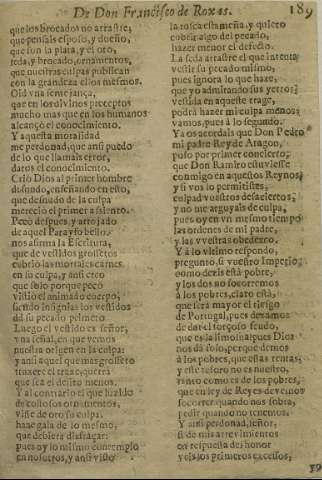 De Don Francisco de Roxas. 189
que los brocados no arrastre,
que penseis esposo, y dueño,
que son la plata, y el oro,
seda, y brocado, ornamentos,
que nuestras culpas publican
con la grandeza ellos mesmos.
Oid vna semejança,
que en los diuinos preceptos
mucho mas que en los humanos
alcançò el conocimiento.
Y a questa moralidad
me perdonad, que ansi puedo
de lo que llamais error,
daros el conocimiento.
Criò Dios al primer hombre
desnudo, enseñando en esto,
que desnudo de la culpa
mereciò el primer assiento.
Pecò despues, y arrojado
de aquel Parayso bello
nos afirma la Escritura,
que de vestidos grosseros
cubriò las mortales carnes
en su culpa, y ansi creo
que solo porque pecò
vistiò el animado cuerpo,
siendo insignias los vestidos
de su pecado primero.
Luego el vestido es señor,
vna señal, en que vemos
nuestra origen en la culpa:
y ansi aquel que mas grossero
truxere el trage, querrà
que sea el delito menos.
Y al contrario el que
de costosos ornamentos,
viste de oro su culpa,
haze gala de lo mesmo,
que debiera disfraçar:
pues oy lo mismo contemplo
en nosotros, y ansi visto
la tosca estameña, y quiero
cubrir algo del pecado,
hazer menor el defecto.
La seda arrastre el que intenta
vestir su pecado mismo,
pues ignora lo que haze,
que yo admirando sus yerros
vestida en aqueste trage,
podrà hazer mi culpa menos;
vamos, pues à lo segundo.
Ya os acordais que Don Pedro
mi padre Rey de Aragon,
puso por primer concierto,
que Don Ramiro estuuiesse
conmigo en aquestos Reynos,
y si vos lo permitistes,
culpad vuestros desaciertos,
y no me arguyais de culpa,
pues oy en vn mesmo tiempo
las ordenes de mi padre,
y las vuestras obedezco.
Y à lo vltimo respondo,
pregunto, si vuestro Imperio,
como dezis està pobre,
y los dos no socorremos
à los pobres, claro està,
que serà mayor el riesgo
de Portugal, pues dexamos
de dar el forçoso feudo,
que es la limosna, pues Dios
nos dà solo, porque demos
à los pobres, que estas rentas,
y este tesoro no es nuestro,
tanto como de los pobres,
que en ley de Reyes deuemos
socorrer quando nos sobra,
pedir quando no tenemos.
Y ansi perdonad, señor,
si de mis atreuimientos
en respuesta del honor
veis los primeros excessos,